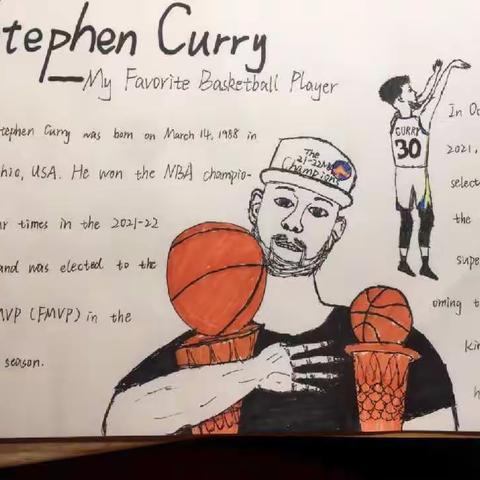 tephen Curry
—My Favorite Basketball Player
tephen Curry was born on March 14, 1988 in
hio, USA. He won the NBA champio-
ur times in the 2021-22
and was elected to the
MVP (FMVP) in the
season.
The
21-22NBA
Champions
CURRY
30
In Oc
2021,
select
the
supe
oming t
Kin
h